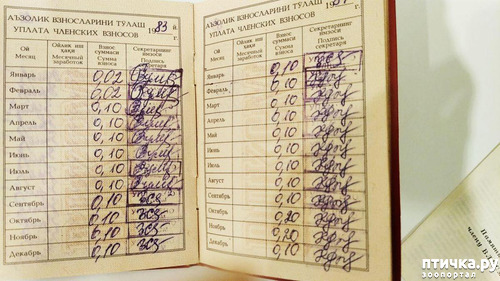 АЪЗОЛИК ВЗНОСЛАРИНИ ТЎЛАШ
УПЛАТА ЧЛЕНСКИХ ВЗНОСОВ 1983 й. г.
Ой Месяц Ойлик иш ҳақи Месячный заработок Взнос суммаси Сумма взноса Секретарнинг имзоси Подпись секретаря
Январь 0,02
Февраль 0,02
Март 0,10
Апрель 0,10
Май 0,10
Июнь 0,10
Июль 0,10
Август 0,10
Сентябрь 0,10
Октябрь 0,10
Ноябрь 0,10
Декабрь 0,10
АЪЗОЛИК ВЗНОСЛАРИНИ ТЎЛАШ
УПЛАТА ЧЛЕНСКИХ ВЗНОСОВ 19 г.
Ой Месяц Ойлик иш ҳақи Месячный заработок Взнос суммаси Сумма взноса Секретарнинг имзоси Подпись секретаря
Январь 0,10
Февраль 0,10
Март 0,10
Апрель 0,10
Май 0,10
Июнь 0,10
Июль 0,10
Август 0,10
Сентябрь 0,10
Октябрь 0,20
Ноябрь 0,20
Декабрь 0,10
члену
птичка.ру
зоопортал